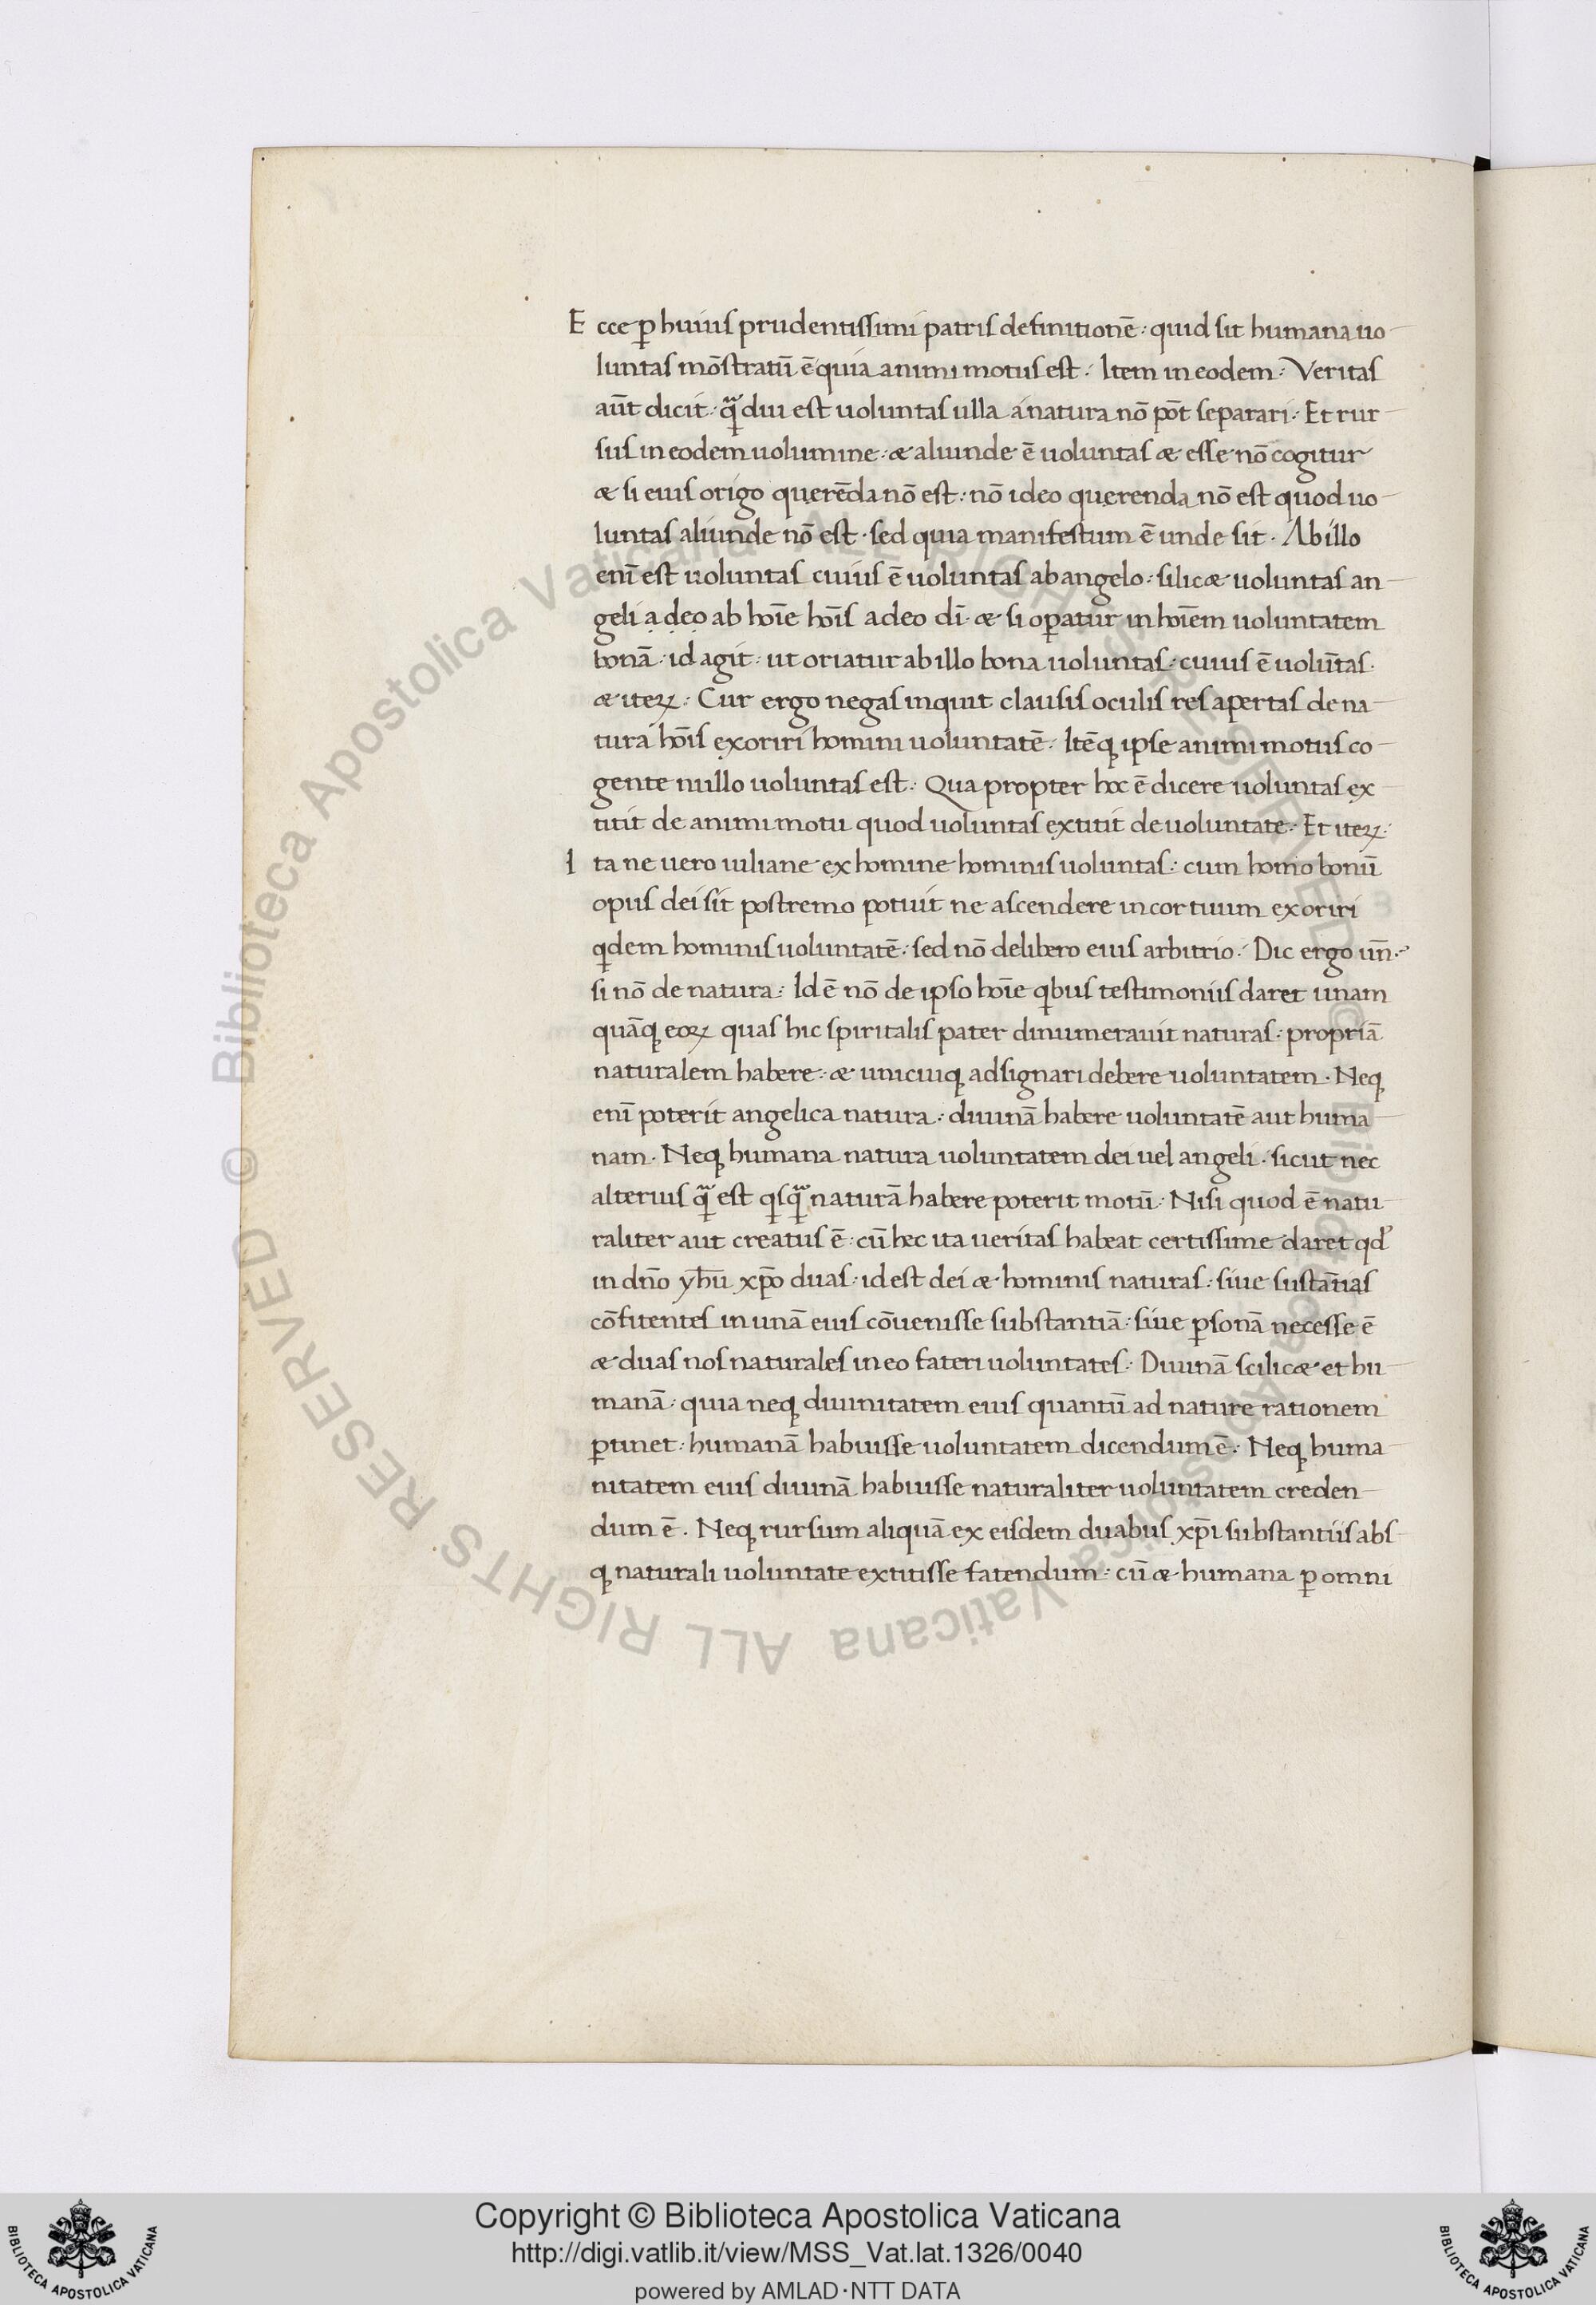 Ecce ꝑ huius prudentissimi patris definitionē: quid sit humana uo
luntas mōstratū ē quia animi motus est: Item in eodem: Veritas
aūt dicit: qᷓdiu est uoluntas ulla a natura nō pōt separari: Et rur
sus in eodem uolumine: æ aliunde ē uoluntas æ esse nō cogitur
æ si eius origo querēda nō est: nō ideo querenda nō est quod uo
luntas aliunde nō est · sed quia manifestum ē unde sit · Ab illo
enī est uoluntas cuius ē uoluntas ab angelo: silicæ uoluntas an
geli ạ dẹọ ab hoīe hoīs a deo dī · æ si oꝑatur in hoīem uoluntatem
bonā: id agit: ut oriatur ab illo bona uoluntas: cuius ē uolūtas ·
æ iteꝝ: Cur ergo negas inquit clausis oculis res apertas de na
tura hoīs exoriri homini uoluntatē: Itēq ipse animi motus co
gente nullo uoluntas est: Qua propter hoc ē dicere uoluntas ex
titit de animi motu quod uoluntas extitit de uoluntate: Et iteꝝ:
Ita ne uero iuliane ex homine hominis uoluntas: cum homo bonū
opus dei sit postremo potuit ne ascendere in cor tuum exoriri
qdem hominis uoluntatē: sed nō delibero eius arbitrio: Dic ergo un̄:
si nō de natura: Id ē nō de ipso hoīe qbus testimoniis daret unam
quāq eoꝝ quas hic spiritalis pater dinumerauit naturas: propriā
naturalem habere: æ unicuiq adsignari debere uoluntatem · Neq
enī poterit angelica natura: diuinā habere uoluntatē aut huma
nam · Neq humana natura uoluntatem dei uel angeli · sicut nec
alterius qᷓ est qsqᷓ naturā habere poterit motū: Nisi quod ē natu
raliter aut creatus ē: cū hec ita ueritas habeat certissime daret qd
in dn̄o yhū xp̄o duas: id est dei æ hominis naturas: siue sustātias
cōfitentes in unā eius cōuenisse substantiā: siue ꝑsonā necesse ē
æ duas nos naturales in eo fateri uoluntates: Diuinā scilicæ et hu
manā: quia neq diuinitatem eius quantū ad nature rationem
ꝑtinet: humanā habuisse uoluntatem dicendum ē: Neq huma
nitatem eius diuinā habuisse naturaliter uoluntatem creden
dum ē · Neq rursum aliquā ex eisdem duabus xp̄i substantiis abs
q naturali uoluntate extitisse fatendum: cū æ humana ꝑ omni
© Biblioteca Apostolica Vaticana ALL RIGHTS RESERVED © Biblioteca Apostolica Vaticana ALL RIGHTS RESERVED
Copyright © Biblioteca Apostolica Vaticana
http://digi.vatlib.it/view/MSS_Vat.lat.1326/0040
powered by AMLAD·NTT DATA
BIBLIOTECA APOSTOLICA VATICANA
BIBLIOTECA APOSTOLICA VATICANA